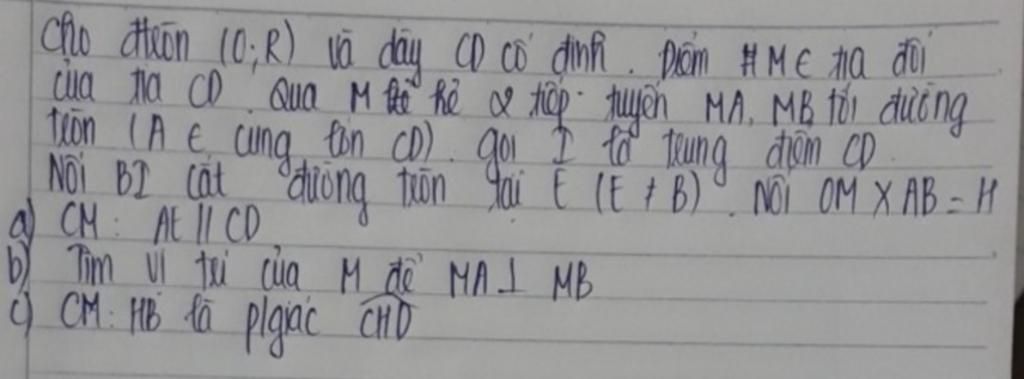 Cho đtròn (O;R) và dây CD cố định. Điểm M ∈ tia đối
của tia CD. Qua M kẻ 2 tiếp tuyến MA, MB tới đường
tròn (A ∈ cung lớn CD). gọi I là trung điểm CD
Nối BI cắt đường tròn tại E (E ≠ B). Nối OM X AB = H
a) CM: AE // CD
b) Tìm vị trí của M để MA ⊥ MB
c) CM: HB là p/giác CHD